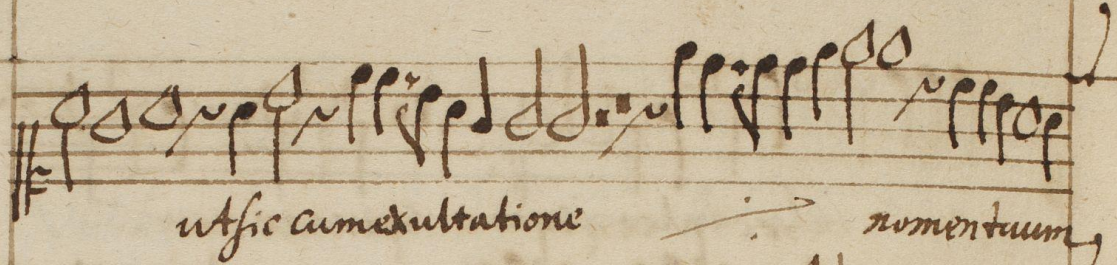 ut sic cum exultatione nomen tuum,